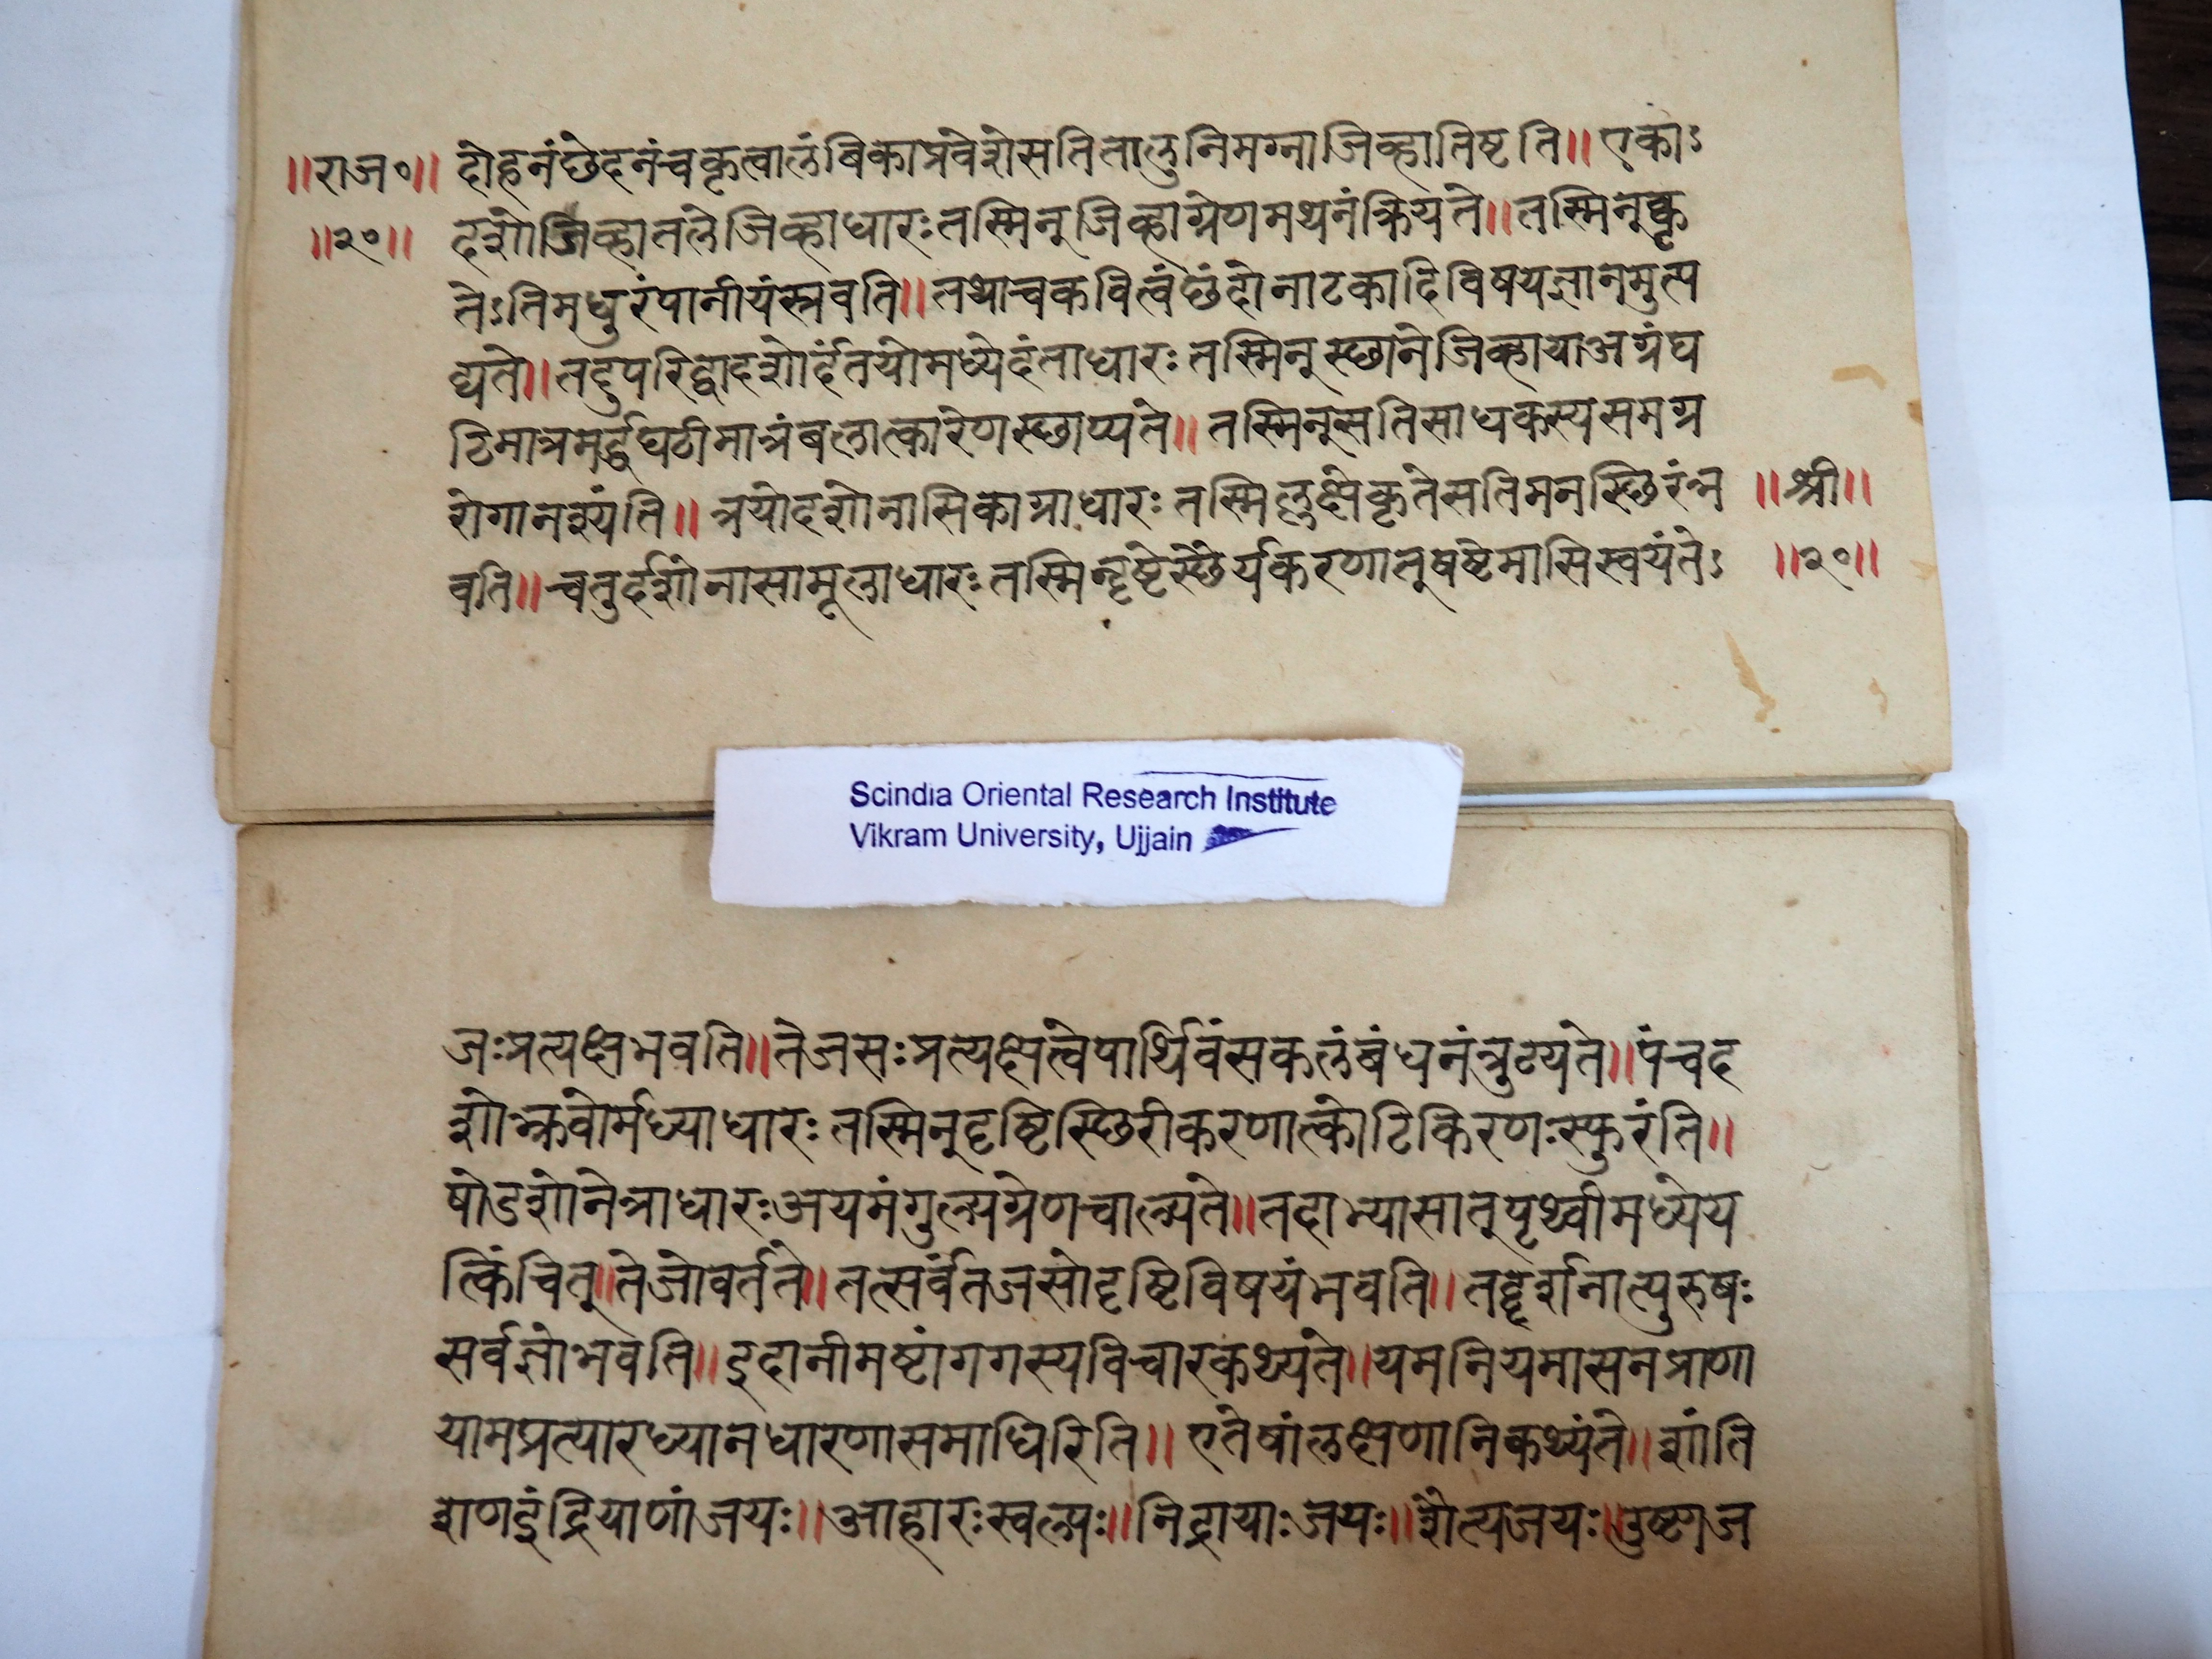 ॥राज०॥ दोहनंछेदनंचकृत्वालंबिकाप्रवेशेसतितालुनिमग्नाजिव्हातिष्टति॥ एकाऽ
॥२०॥ दशोजिव्हातलेजिव्हाधारःतस्मिन्जिव्हाग्रेणमथनंक्रियते॥तस्मिन्कृ
तेऽतिमधुरंपानीयंस्त्रवति॥तथाचकवित्वंछंदोनाटकादिविषयज्ञानमुत्प
द्यते॥तदुपरिद्वादशोर्दंतयोमध्येदंताधारः तस्मिन्स्छानेजिव्हायाअग्रंघ
टिमात्रमर्द्धघठीमात्रंबलात्कारेणस्छाप्यते॥ तस्मिन्सतिसाधकस्यसमग्र
रोगानश्यंति॥ त्रयोदशोनासिकाग्राधारः तस्मिल्लक्षेकृतेसतिमनस्छिरंन्न ॥श्री॥
वति॥चतुर्दशोनासामूलाधारःतस्मिन्दृष्टेस्छैर्यकरणात्षष्टेमासिस्वयंतेऽ ॥२०॥
Scindia Oriental Research Institute
Vikram University, Ujjain
जःप्रत्यक्षभवति॥तेजसःप्रत्यक्षत्वेपार्थिवंसकलंबंधनंत्रुटयते॥पंचद
शोभ्रुवोर्मध्याधारः तस्मिन्दृष्टिस्छिरीकरणात्कोटिकिरणःस्फुरंति॥
षोडशोनेत्राधारःअयमंगुल्यग्रेणचाल्यते॥तदाभ्यासात्पृथ्वीमध्येय
त्किंचित्॥तेजोवर्तते॥तत्सर्वंतेजसोदृष्टिविषयंभवति॥तद्दर्शनात्पुरुषः
सर्वज्ञोभवति॥इदानीमष्टांगगस्यविचारकथ्यंते॥यमनियमासनप्राणा
यामप्रत्यारध्यानधारणासमाधिरिति॥ एतेषांलक्षणानिकथ्यंते॥शांति
शेणइंद्रियाणांजयः॥आहारःस्वल्पः॥निद्रायाःजयः॥शैत्यजयः॥उष्णज